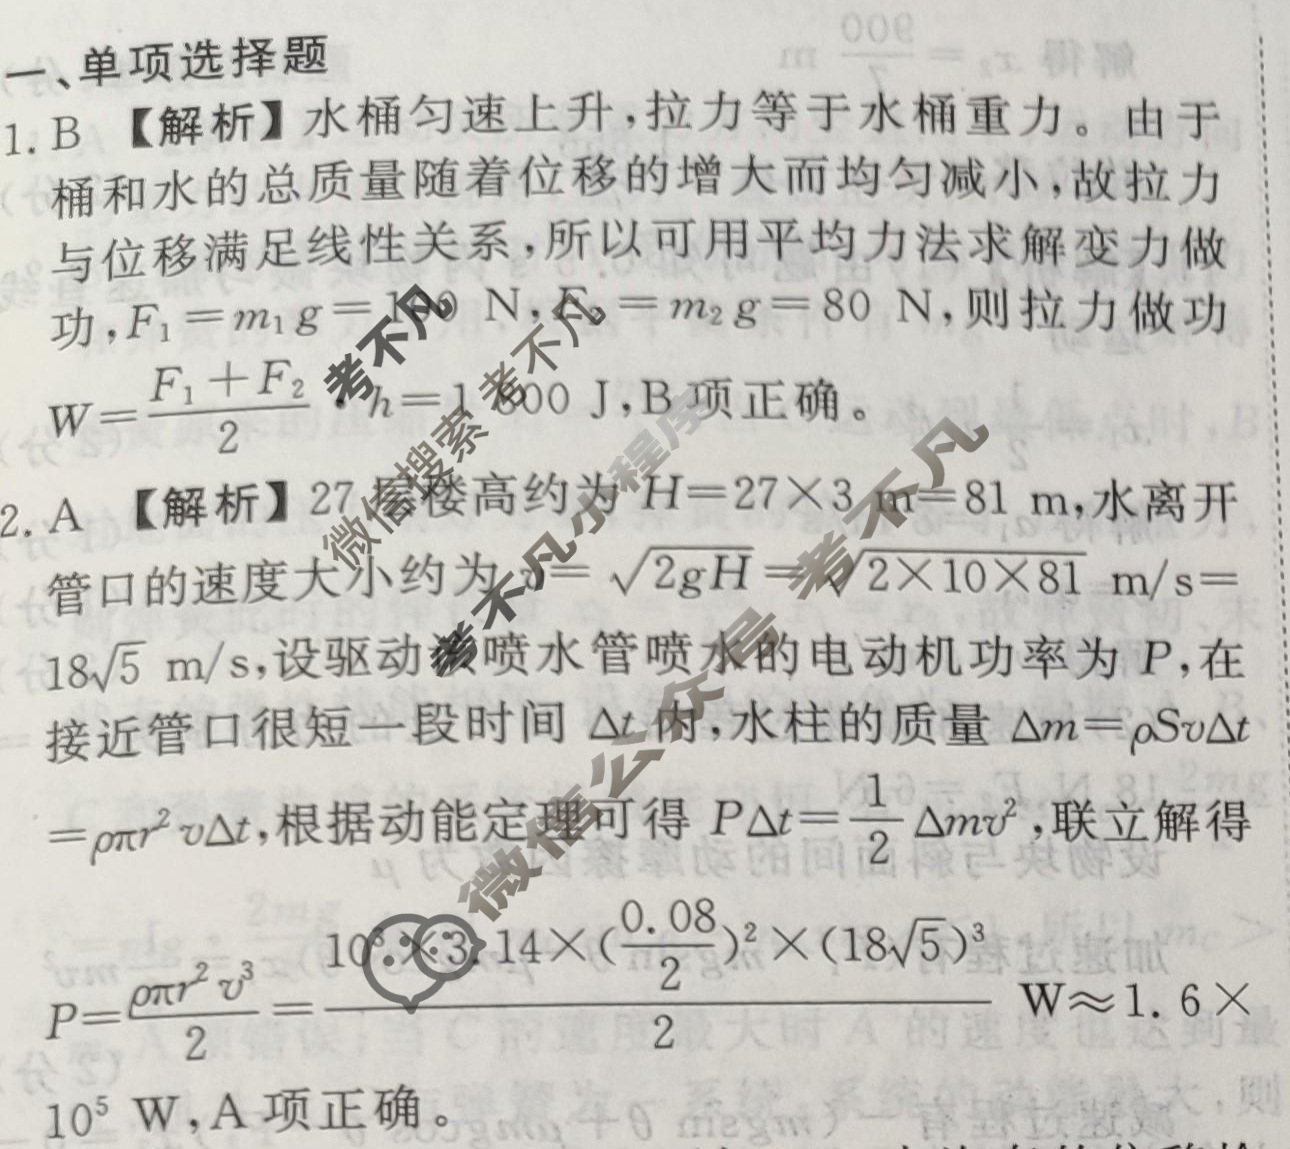 一、单项选择题
1. B 【解析】水桶匀速上升,拉力等于水桶重力。由于
桶和水的总质量随着位移的增大而均匀减小,故拉力
与位移满足线性关系,所以可用平均力法求解变力做
功,F₁=m₁g=100 N,F₂=m₂g=80 N,则拉力做功
W=\frac{F₁+F₂}{2}·h=1 800 J,B项正确。
2. A 【解析】27层楼高约为 H=27×3 m=81 m,水离开
管口的速度大小约为 v=√(2gH)=√(2×10×81) m/s=
18√5 m/s,设驱动喷水管喷水的电动机功率为 P,在
接近管口很短一段时间 Δt 内,水柱的质量 Δm=ρSvΔt
=ρπr²vΔt,根据动能定理可得 PΔt=\frac{1}{2}Δmv²,联立解得
P=\frac{ρπr²v³}{2}=\frac{10³×3.14×(\frac{0.08}{2})²×(18√5)³}{2} W≈1.6×
10⁵ W,A项正确。
考不凡
微信搜索 考不凡
考不凡小程序
微信公众号 考不凡